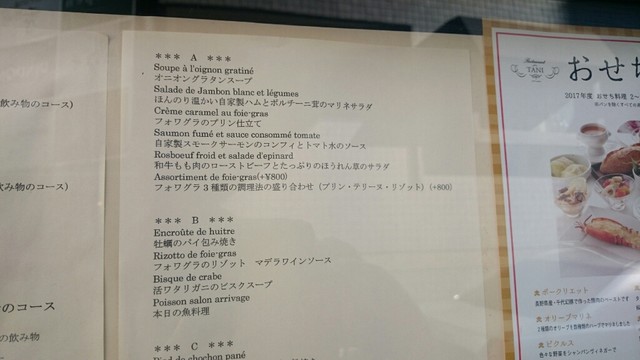 飲み物のコース)
み物のコース)
のコース
の飲み物
*** A ***
Soupe à l'oignon gratiné
オニオングラタンスープ
Salade de Jambon blanc et légumes
ほんのり温かい自家製ハムとポルチーニ茸のマリネサラダ
Crème caramel au foie-gras
フォワグラのプリン仕立て
Saumon fumé et sauce consommé tomate
自家製スモークサーモンのコンフィとトマト水のソース
Rosboeuf froid et salade d'epinard
和牛もも肉のローストビーフとたっぷりのほうれん草のサラダ
Assortiment de foie-gras(+¥800)
フォワグラ3種類の調理法の盛り合わせ (プリン・テリーヌ・リゾット) (+800)
*** B ***
Encroûte de huitre
牡蠣のパイ包み焼き
Rizotto de foie-gras
フォワグラのリゾット マデラワインソース
Bisque de crabe
活ワタリガニのビスクスープ
Poisson salon arrivage
本日の魚料理
*** C ***
de chochon pané
Restaurant
TANI
おせち
2017年度 おせち料理 2～
★ポークリエット
★オリーブマリネ
★ピクルス